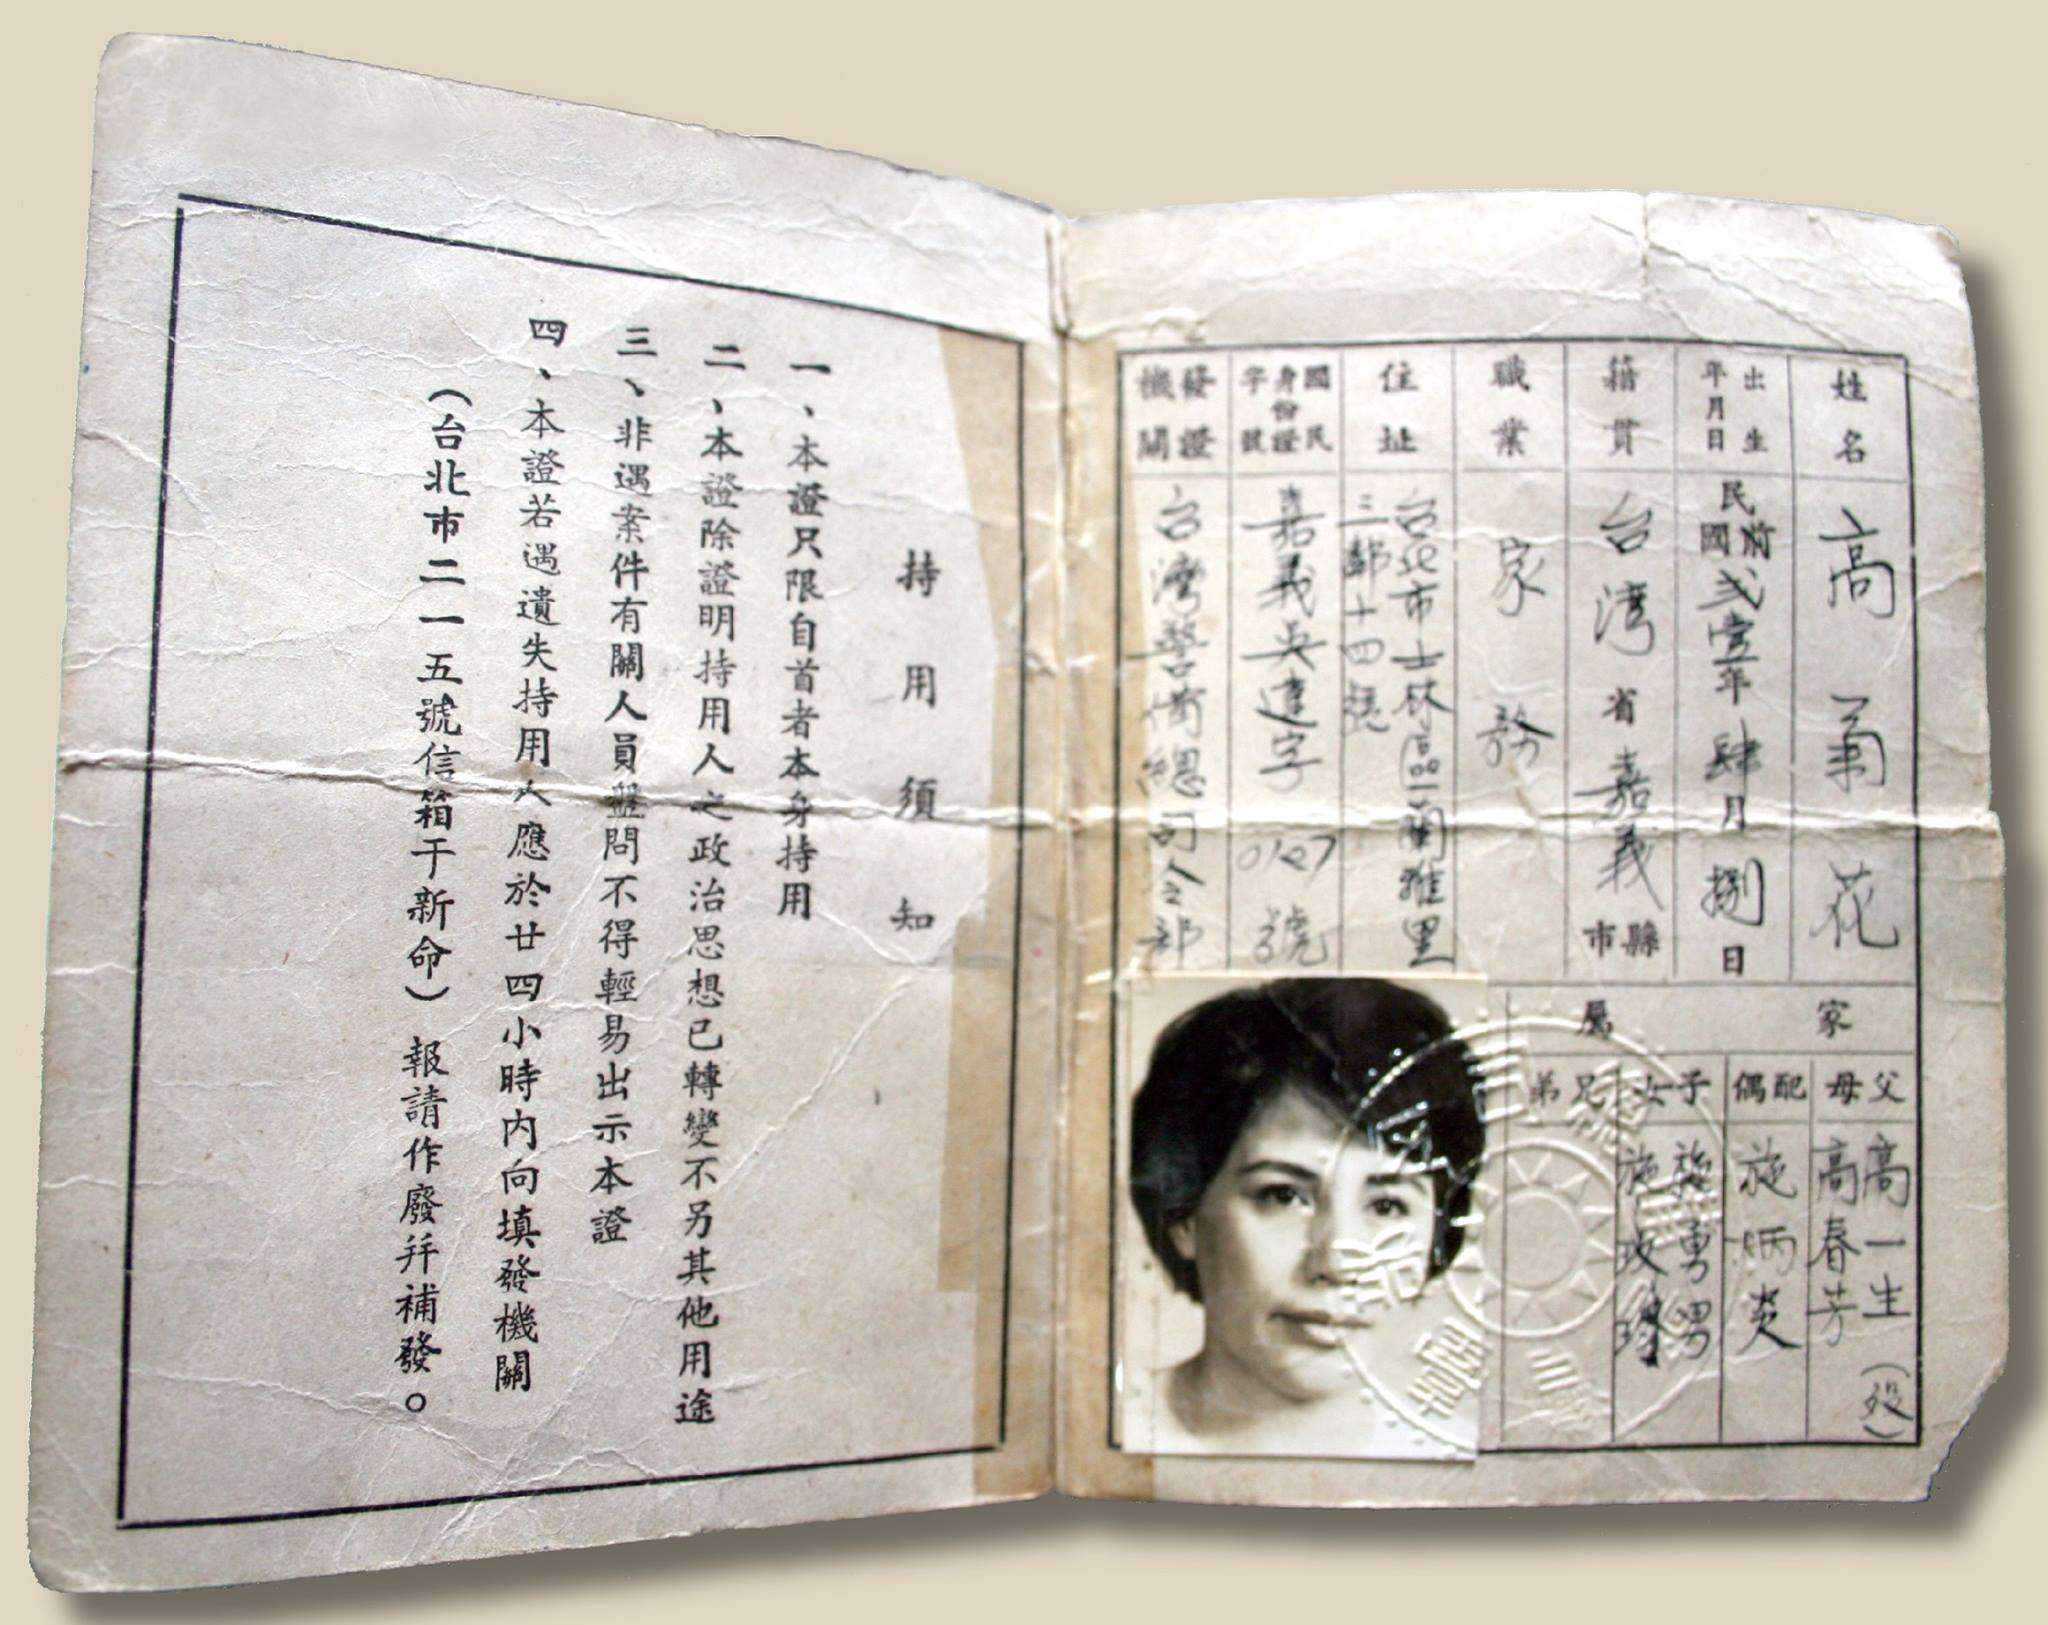 姓名
高菊花
出生年月日
民國前貳壹年肆月捌日
籍貫
台灣省嘉義縣市
職業
家務
住址
台北市士林區蘭雅里
三鄰十四號
國民身份證字號
嘉義吳達字0127號
發證機關
台灣警備總司令部
家屬
父母
高一生(歿)
高春芳
配偶
施炳炎
子女
施勇男
施玫
兄弟
持用須知
一、本證只限自首者本身持用
二、本證除證明持用人之政治思想已轉變不另其他用途
三、非遇案件有關人員盤問不得輕易出示本證
四、本證若遇遺失持用人應於廿四小時內向填發機關
(台北市二一五號信箱于新命)報請作廢并補發。